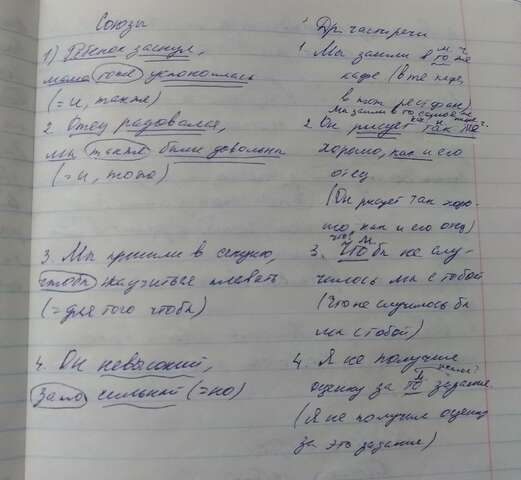 Союзы
1) Ребёнок заснул,
мама тоже успокоилась
(= и, также)
2. Отец радовался,
мы также были довольны
(= и, тоже)
3. Мы пришли в секцию,
чтобы научиться плавать
(= для того чтобы)
4. Он невысокий,
зато сильный (= но)
Др. части речи
1. Мы зашли в то же
кафе (в те же,
в этот ресторан)
Мы зашли в то самое
2. Он рисует так же
хорошо, как и его
отец
(Он рисует так хоро-
шо, как и его отец)
3. Что бы не слу-
чилось мы с тобой
(Что не случилось бы
мы с тобой)
4. Я не получил
оценку за то задание.
(Я не получил оценку
за это задание)